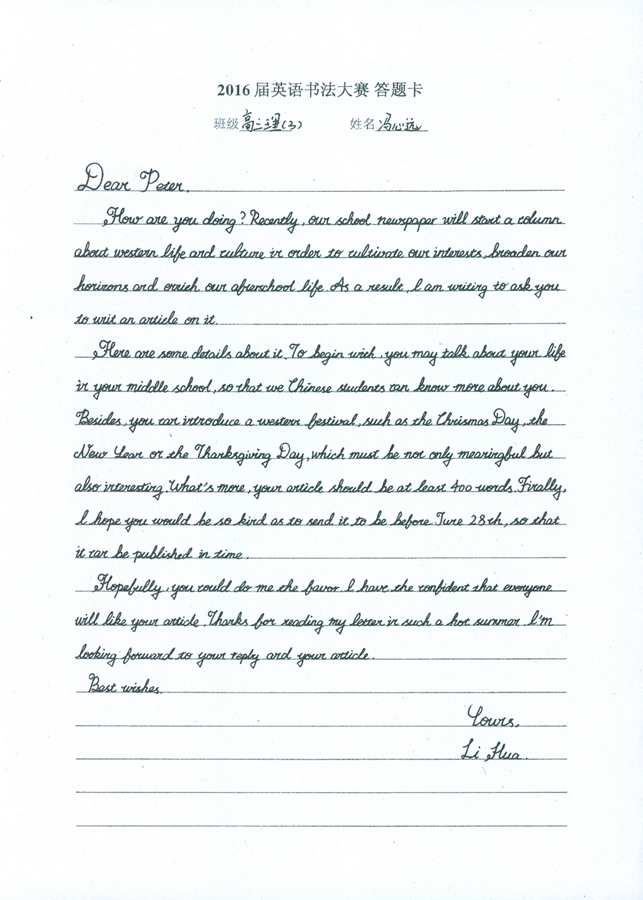 2016 届英语书法大赛 答题卡
班级 高三理(3) 姓名 冯心远
Dear Peter,
How are you doing? Recently, our school newspaper will start a column
about western life and culture in order to cultivate our interests, broaden our
horizons and enrich our afterschool life. As a result, I am writing to ask you
to writ an article on it.
Here are some details about it. To begin with, you may talk about your life
in your middle school, so that we Chinese students can know more about you.
Besides, you can introduce a western festival, such as the Chrismas Day, the
New Year or the Thanksgiving Day, which must be not only meaningful but
also interesting. What's more, your article should be at least 400 words. Finally,
I hope you would be so kind as to send it to be before June 28th, so that
it can be published in time.
Hopefully, you could do me the favor I have the confident that everyone
will like your article. Thanks for reading my letter in such a hot summer. I'm
looking forward to your reply and your article.
Best wishes.
Yours,
Li Hua.